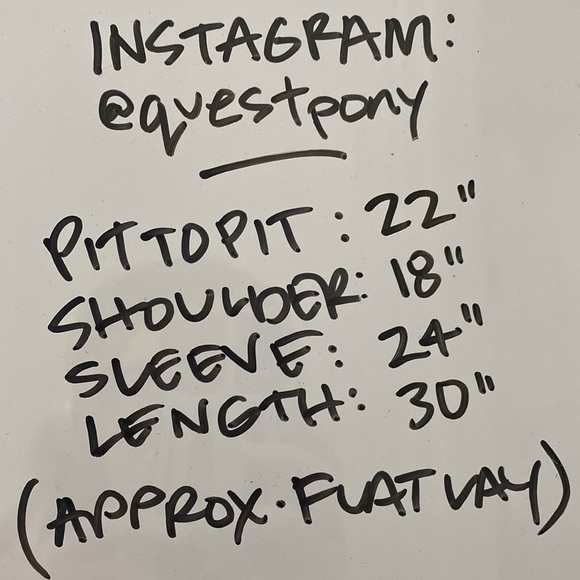 INSTAGRAM:
@questpony
PIT TO PIT: 22"
SHOULDER: 18"
SLEEVE: 24"
LENGTH: 30"
(APPROX. FLAT LAY)